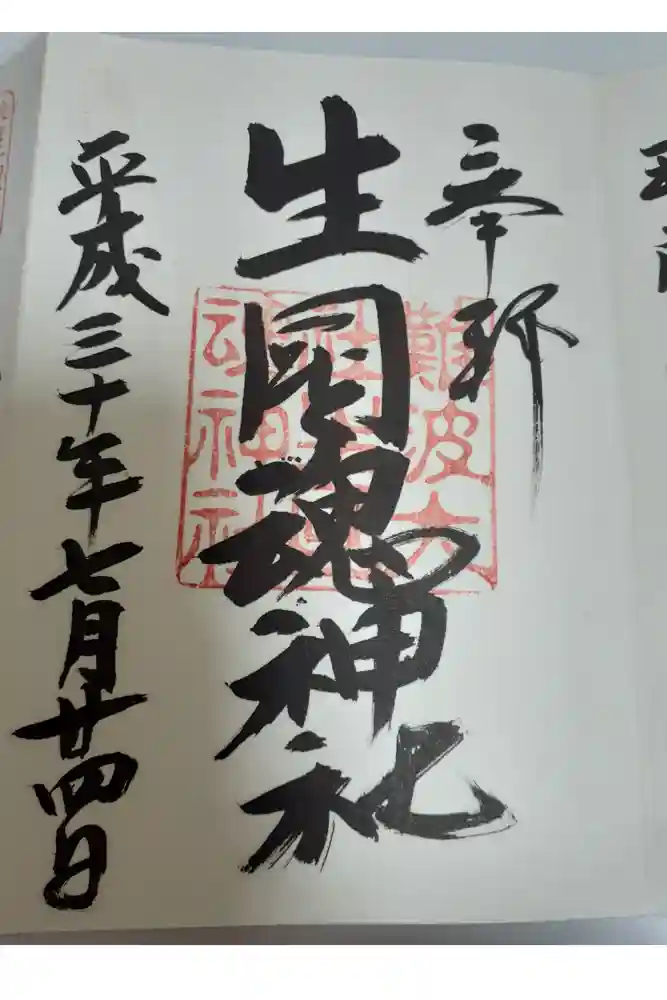 奉拝
生國魂神社
難波大
社生國
魂神社
平成三十年七月廿四日